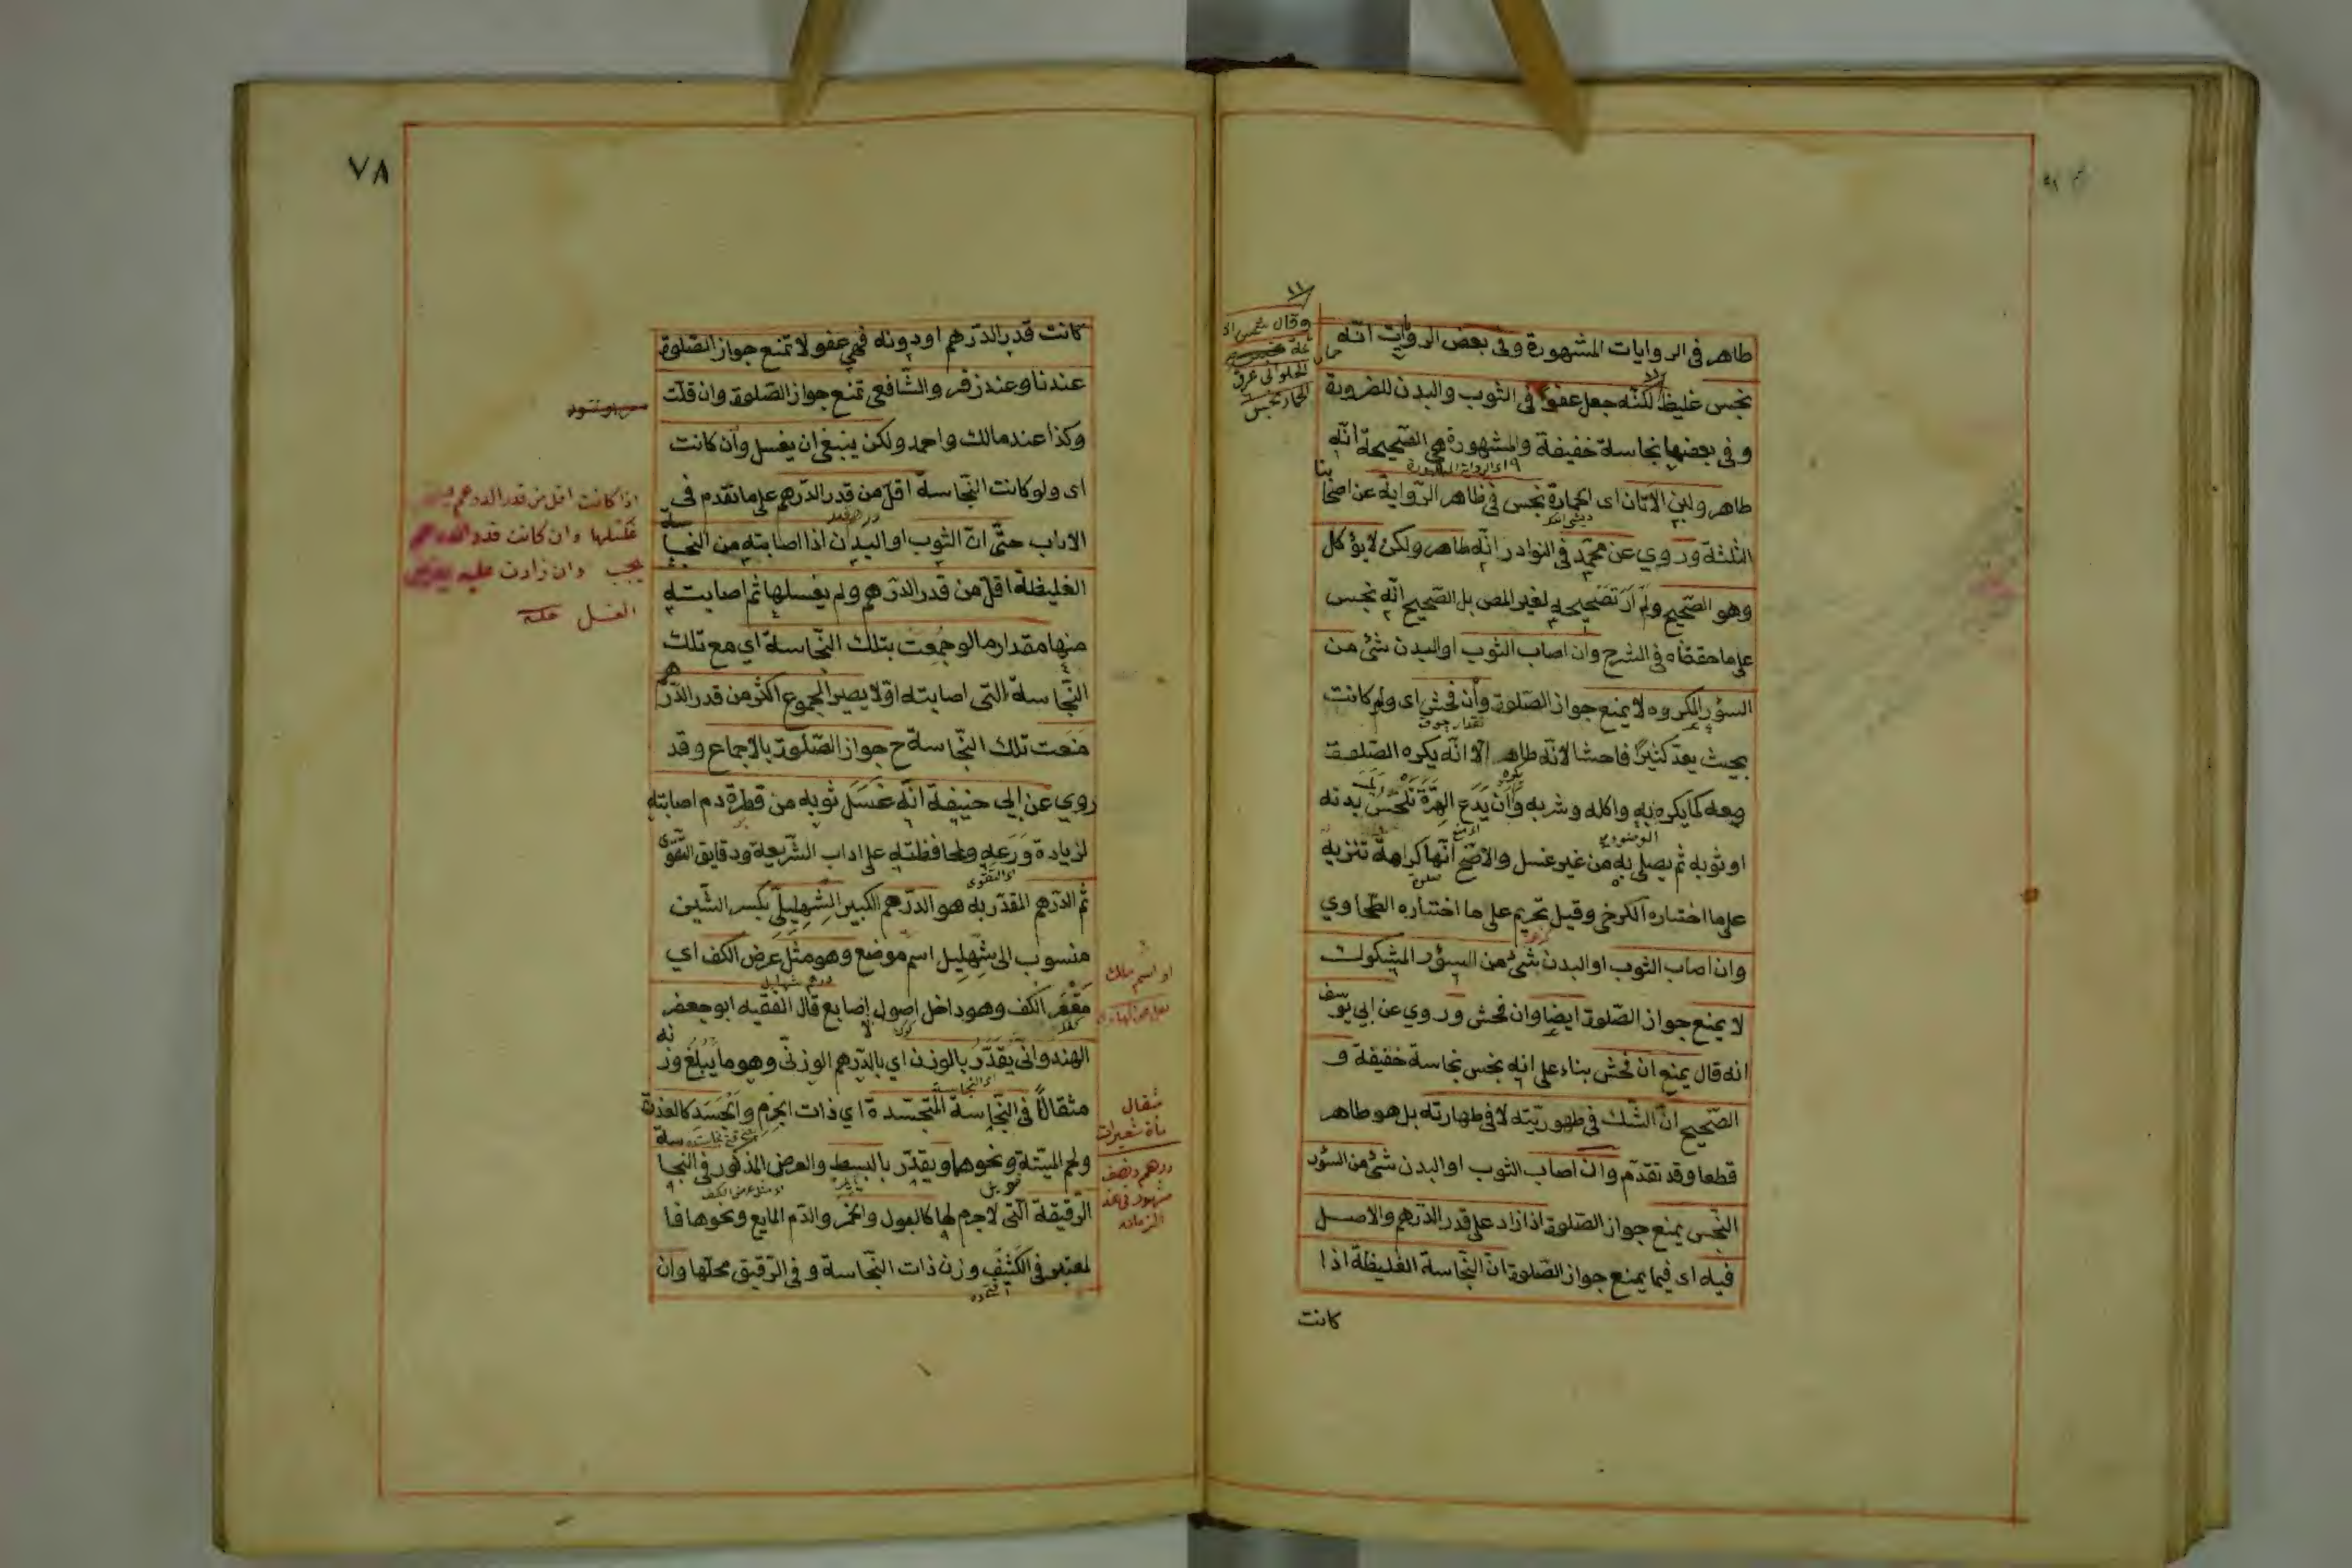 طاهر فى الروايات المشهورة وفى بعض الروايات انّه
نجس غليظ لكنّه جعل عفوا فى الثوب والبدن للضرورة
وفى بعضها نجاسة خفيفة والمشهورة هى الصّحيحة انّه
طاهر ولبن الأتان اى الحمارة نجس فى ظاهر الرّواية عن اصحابنا
الثلثة وروي عن محمّد فى النوادر انّه طاهر ولكن لا يؤكل
وهو الصّحيح ولم أرَ تصحيحه لغير المص بل الصّحيح انّه نجس
على ما حققناه فى الشرح وان اصاب الثوب او البدن شئ من
السؤر المكروه لا يمنع جواز الصّلوة وأن فحش اى ولو كانت
بحيث يعدّ كثيرًا فاحشا لانّه طاهر الّا انّه يكره الصّلوة
معه كما يكره به واكله وشربه وأن يَدَع الهرّة تلحس بدنه
او ثوبه ثم يصلى به من غير غسل والاصح انّها كراهة تنزيه
على ما اختاره الكرخى وقيل تحريم على ما اختاره الطّحاوي
وان اصاب الثوب او البدن شئ من السؤر المشكوك
لا يمنع جواز الصّلوة ايضا وان فحش وروي عن ابي يوسف
انه قال يمنع ان فحش بناء على انه نجس نجاسة خفيفة و
الصّحيح انّ الشّك فى طهوريّته لا فى طهارته بل هو طاهر
قطعا وقد تقدّم وان اصاب الثوب او البدن شئ من السؤر
النّجس يمنع جواز الصّلوة اذا زاد على قدر الدّرهم والاصل
فيه اى فيما يمنع جواز الصّلوة انّ النّجاسة الغليظة اذا
كانت
وقال شمس الا
ئمة
الحلوانى عرق
الحمار نجس
٧٨
كانت قدر الدّرهم او دونه فهي عفو لا تمنع جواز الصّلوة
عندنا وعند زفر والشّافعى تمنع جواز الصّلوة وان قلّت
وكذا عند مالك واحمد ولكن ينبغى ان يغسل وأن كانت
اى ولو كانت النّجاسة اقلّ من قدر الدّرهم على ما تقدم فى
الاداب حتّى انّ الثوب او البدن اذا اصابته من النجاسة
الغليظة اقلّ من قدر الدّرهم ولم يغسلها ثم اصابته
منها مقدار ما لو جُمِعت بتلك النّجاسة اي مع تلك
النّجاسة التى اصابته اوّلا يصير المجموع اكثر من قدر الدّرهم
مَنَعت تلك النّجاسة ح جواز الصّلوة بالاجماع وقد
روي عن ابي حنيفة انّه غَسَل ثوبه من قطرة دم اصابته
لزيادة وَرَعِه ولمحافظته على اداب الشّريعة ودقايق التّقوى
ثم الدّرهم المقدّر به هو الدّرهم الكبير الشِهلِيليّ بكسر الشّين
منسوب الى شِهلِيل اسم موضع وهو مثل عرض الكف اي
مُقَعَّر الكف وهو داخل اصول اصابع قال الفقيه ابو جعفر
الهندوانىّ يقدّر بالوزن اي بالدّرهم الوزنىّ وهو ما يبلغ وزنه
مثقالاً فى النّجاسة المتجسّدة اي ذات الجِرم والجَسَد كالعذرة
ولحم الميّتة ونحوها ويقدّر بالبسط والعرض المذكور فى النجاسة
الرّقيقة الّتى لا جرم لها كالبول والخمر والدّم المايع ونحوها فا
لمعتبر فى الكثيف وزن ذات النّجاسة وفى الرّقيق محلّها وان
اذا كانت اقل من قدر الدرهم
غسلها وان كانت قدر الدرهم
يجب وان زادت عليه يفرض
الغسل
او اسم ملك
مثقال
مأة شعيرات
درهم ونصف